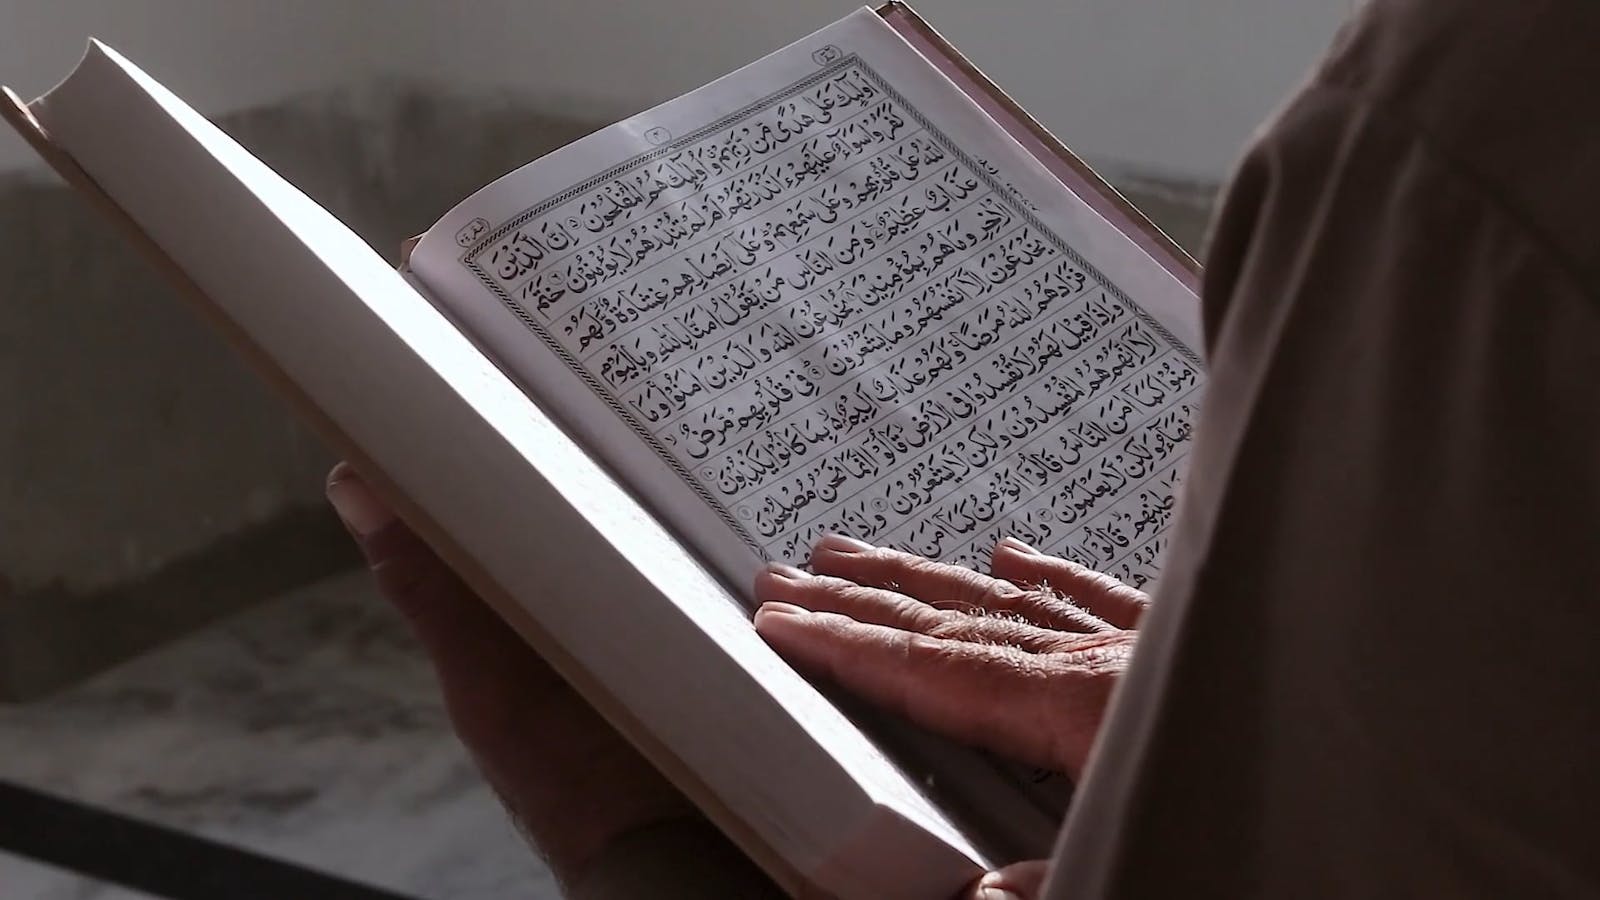 اُولٰٓئِكَ عَلٰى هُدًى مِّنْ رَّبِّهِمْ وَاُولٰٓئِكَ هُمُ الْمُفْلِحُوْنَ ۵ اِنَّ الَّذِيْنَ
كَفَرُوْا سَوَآءٌ عَلَيْهِمْ ءَاَنْذَرْتَهُمْ اَمْ لَمْ تُنْذِرْهُمْ لَا يُؤْمِنُوْنَ ۶ خَتَمَ
اللّٰهُ عَلٰى قُلُوْبِهِمْ وَعَلٰى سَمْعِهِمْ وَعَلٰٓى اَبْصَارِهِمْ غِشَاوَةٌ وَّلَهُمْ
عَذَابٌ عَظِيْمٌ ۷ وَمِنَ النَّاسِ مَنْ يَّقُوْلُ اٰمَنَّا بِاللّٰهِ وَبِالْيَوْمِ
الْاٰخِرِ وَمَا هُمْ بِمُؤْمِنِيْنَ ۸ يُخٰدِعُوْنَ اللّٰهَ وَالَّذِيْنَ اٰمَنُوْا وَمَا
يَخْدَعُوْنَ اِلَّآ اَنْفُسَهُمْ وَمَا يَشْعُرُوْنَ ۹ فِيْ قُلُوْبِهِمْ مَّرَضٌ
فَزَادَهُمُ اللّٰهُ مَرَضًا وَلَهُمْ عَذَابٌ اَلِيْمٌ بِمَا كَانُوْا يَكْذِبُوْنَ ۱۰
وَاِذَا قِيْلَ لَهُمْ لَا تُفْسِدُوْا فِى الْاَرْضِ قَالُوْٓا اِنَّمَا نَحْنُ مُصْلِحُوْنَ ۱۱
اَلَآ اِنَّهُمْ هُمُ الْمُفْسِدُوْنَ وَلٰكِنْ لَّا يَشْعُرُوْنَ ۱۲ وَاِذَا
اٰمِنُوْا كَمَآ اٰمَنَ النَّاسُ قَالُوْٓا اَنُؤْمِنُ كَمَآ اٰمَنَ
وَلٰكِنْ لَّا يَعْلَمُوْنَ ۱۳ وَاِذَا
قَالُوْٓا